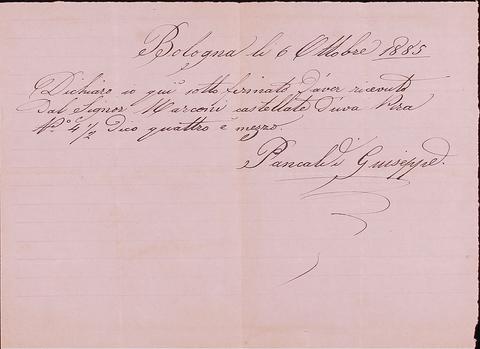 Bologna li 6 Ottobre 1885
Dichiaro io quì sotto firmato d'aver ricevuto
dal Signor Marconi castellate d'uva
N.o 4 1/2 dico quattro e mezzo.
Pancaldi Guiseppe.